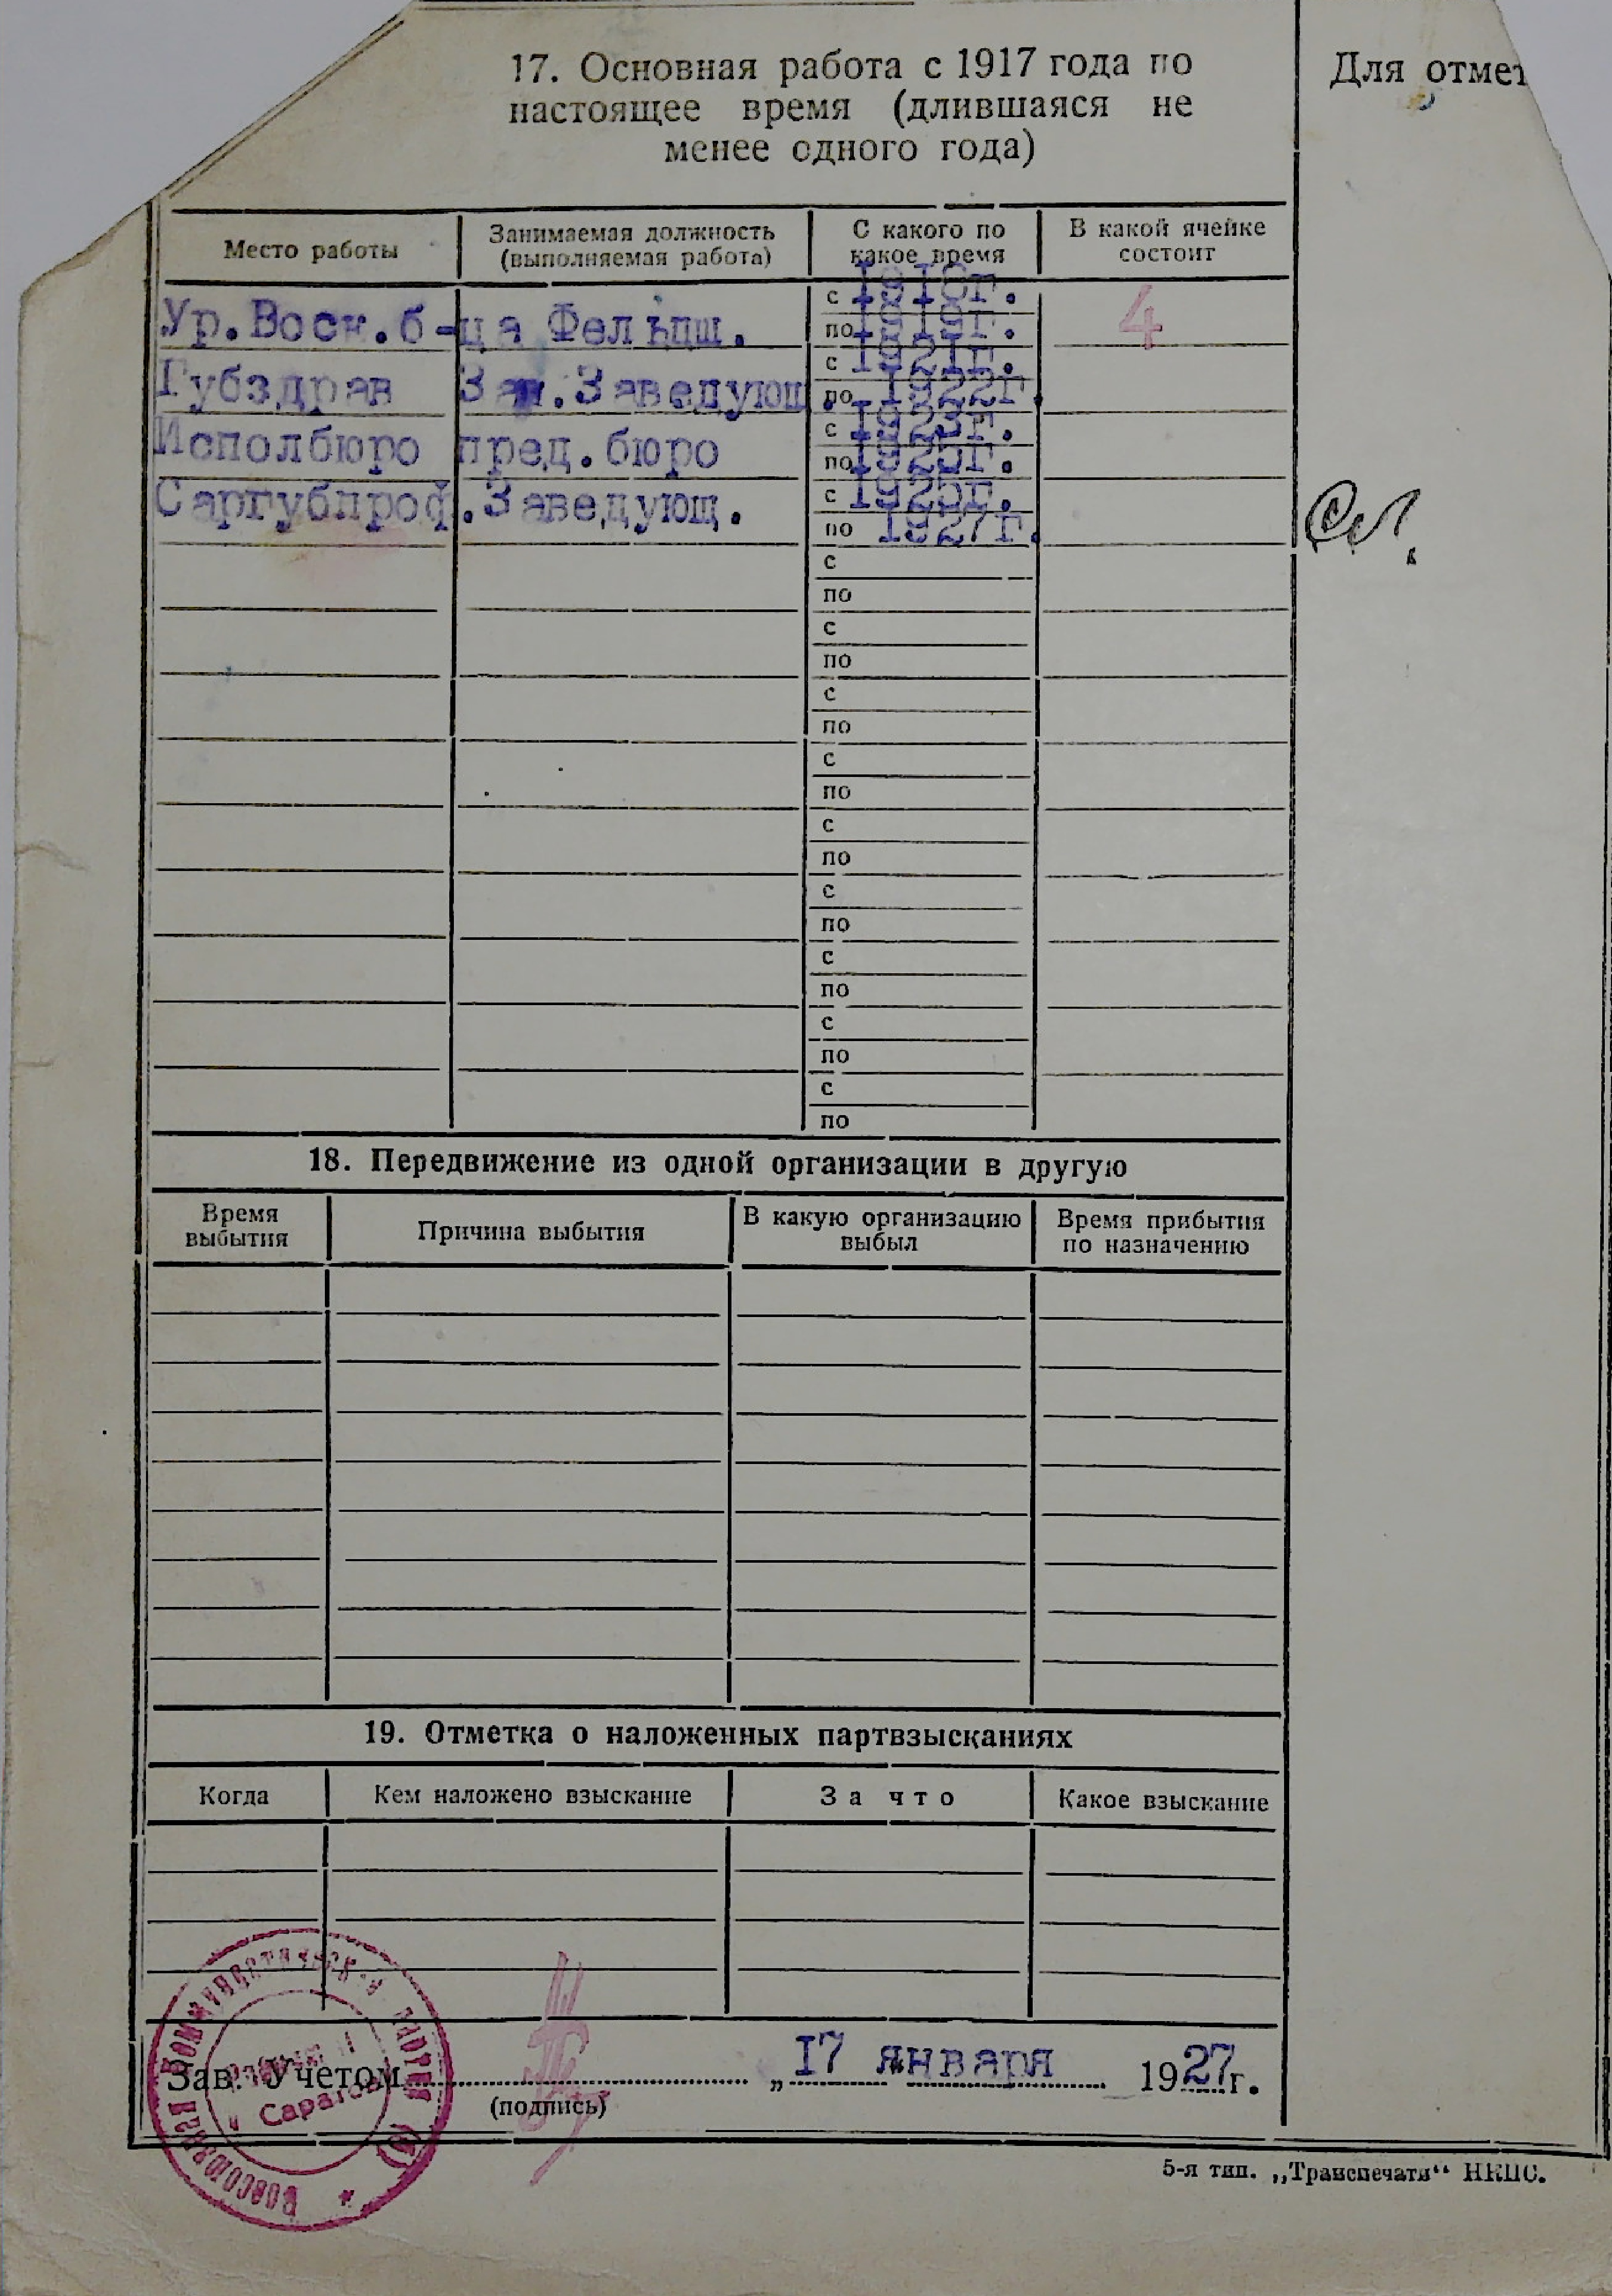 17. Основная работа с 1917 года по
настоящее время (длившаяся не
менее одного года)
Для отмет
Место работы
Занимаемая должность
(выполняемая работа)
С какого по
какое время
В какой ячейке
состоит
Ур.Воен.б-ца Фельдш. с 1918г. 4
по 1919г.
Губздрав Зам.Заведующ. с 1921г.
по 1922г.
Исполбюро пред.бюро с 1923г.
по 1925г.
Саргубпроф.Заведующ. с 1925г.
по 1927г.
с
по
с
по
с
по
с
по
с
по
с
по
с
по
с
по
с
по
18. Передвижение из одной организации в другую
Время
выбытия
Причина выбытия
В какую организацию
выбыл
Время прибытия
по назначению
19. Отметка о наложенных партвзысканиях
Когда
Кем наложено взыскание
За что
Какое взыскание
Зав. Учетом
(подпись)
„17 января 1927г.
Всесоюзная Коммунистическая партия (б)
Саратов
5-я тип. „Транспечати“ НКПС.